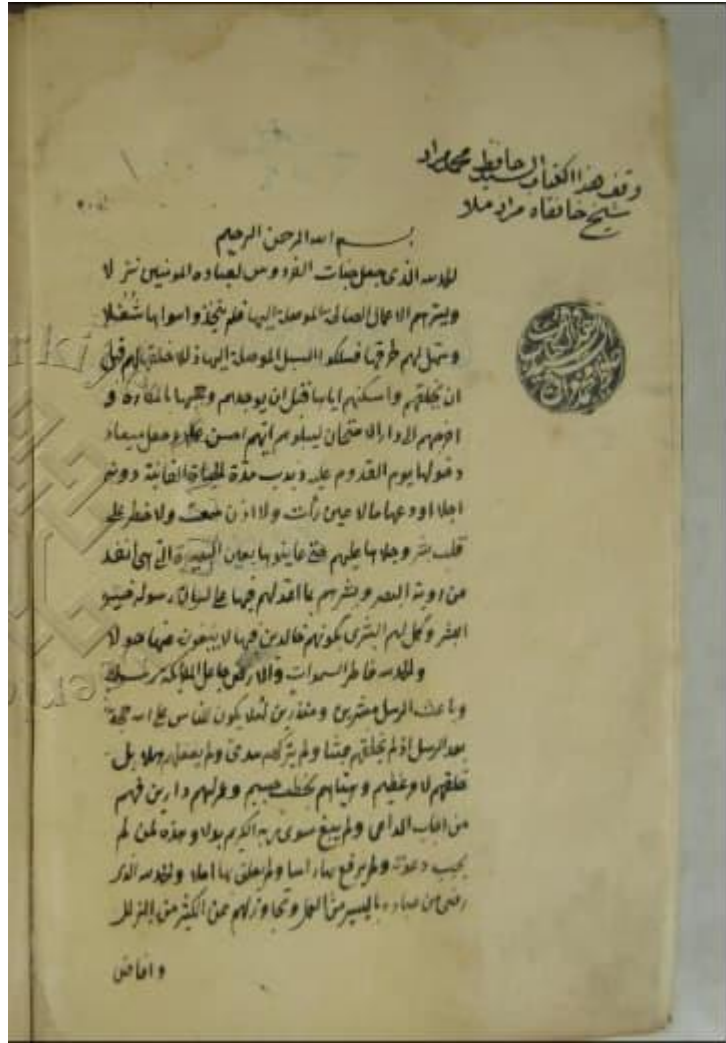 وقف هذا الكتاب السيد حافظ محمد مراد
شيخ خانقاه مراد ملا
بسم الله الرحمن الرحيم
الحمد لله الذى جعل جنات الفردوس لعباده المؤمنين نزلا
ويسرهم الاعمال الصالحة الموصلة اليها فلم يتخذوا سواها شغلا
وسهل لهم طرقها فسلكوا السبل الموصلة اليها ذللا خلقها لهم قبل
ان يخلقهم واسكنهم اياها قبل ان يوجدهم وحجبها بالمكاره و
اخرجهم الى دار الامتحان ليبلوهم ايهم احسن عملا وجعل ميعاد
دخولها يوم القدوم عليه مدة الحياة الفانية دونه
اجلا اودعها مالا عين رأت ولا اذن سمعت ولا خطر على
قلب بشر وجلاها عليهم حتى عاينوها بعين البصيرة التى هى انفذ
من روية البصر وبشرهم بما اعد لهم فيها على لسان رسوله خير
البشر وكمل لهم البشرى بكونهم خالدين فيها لا يبغون عنها حولا
والحمد لله فاطر السموات والارض جاعل الملائكة رسلا
وباعث الرسل مبشرين ومنذرين لئلا يكون للناس على الله حجة
بعد الرسل اذ لم يخلقهم عبثا ولم يتركهم سدى ولم يغفلهم هملا بل
خلقهم لامر عظيم وهيأهم لخطب جسيم وعمر لهم دارين فهم
من اجاب الداعى ولم يبغ سوى ربه الكريم بدلا وهذه لمن لم
يجب دعوته ولم يرفع بها راسا ولم يعلق بها املا والحمد لله الذى
رضى من عباده باليسير من العمل وتجاوز لهم عن الكثير من الزلل
وافاض